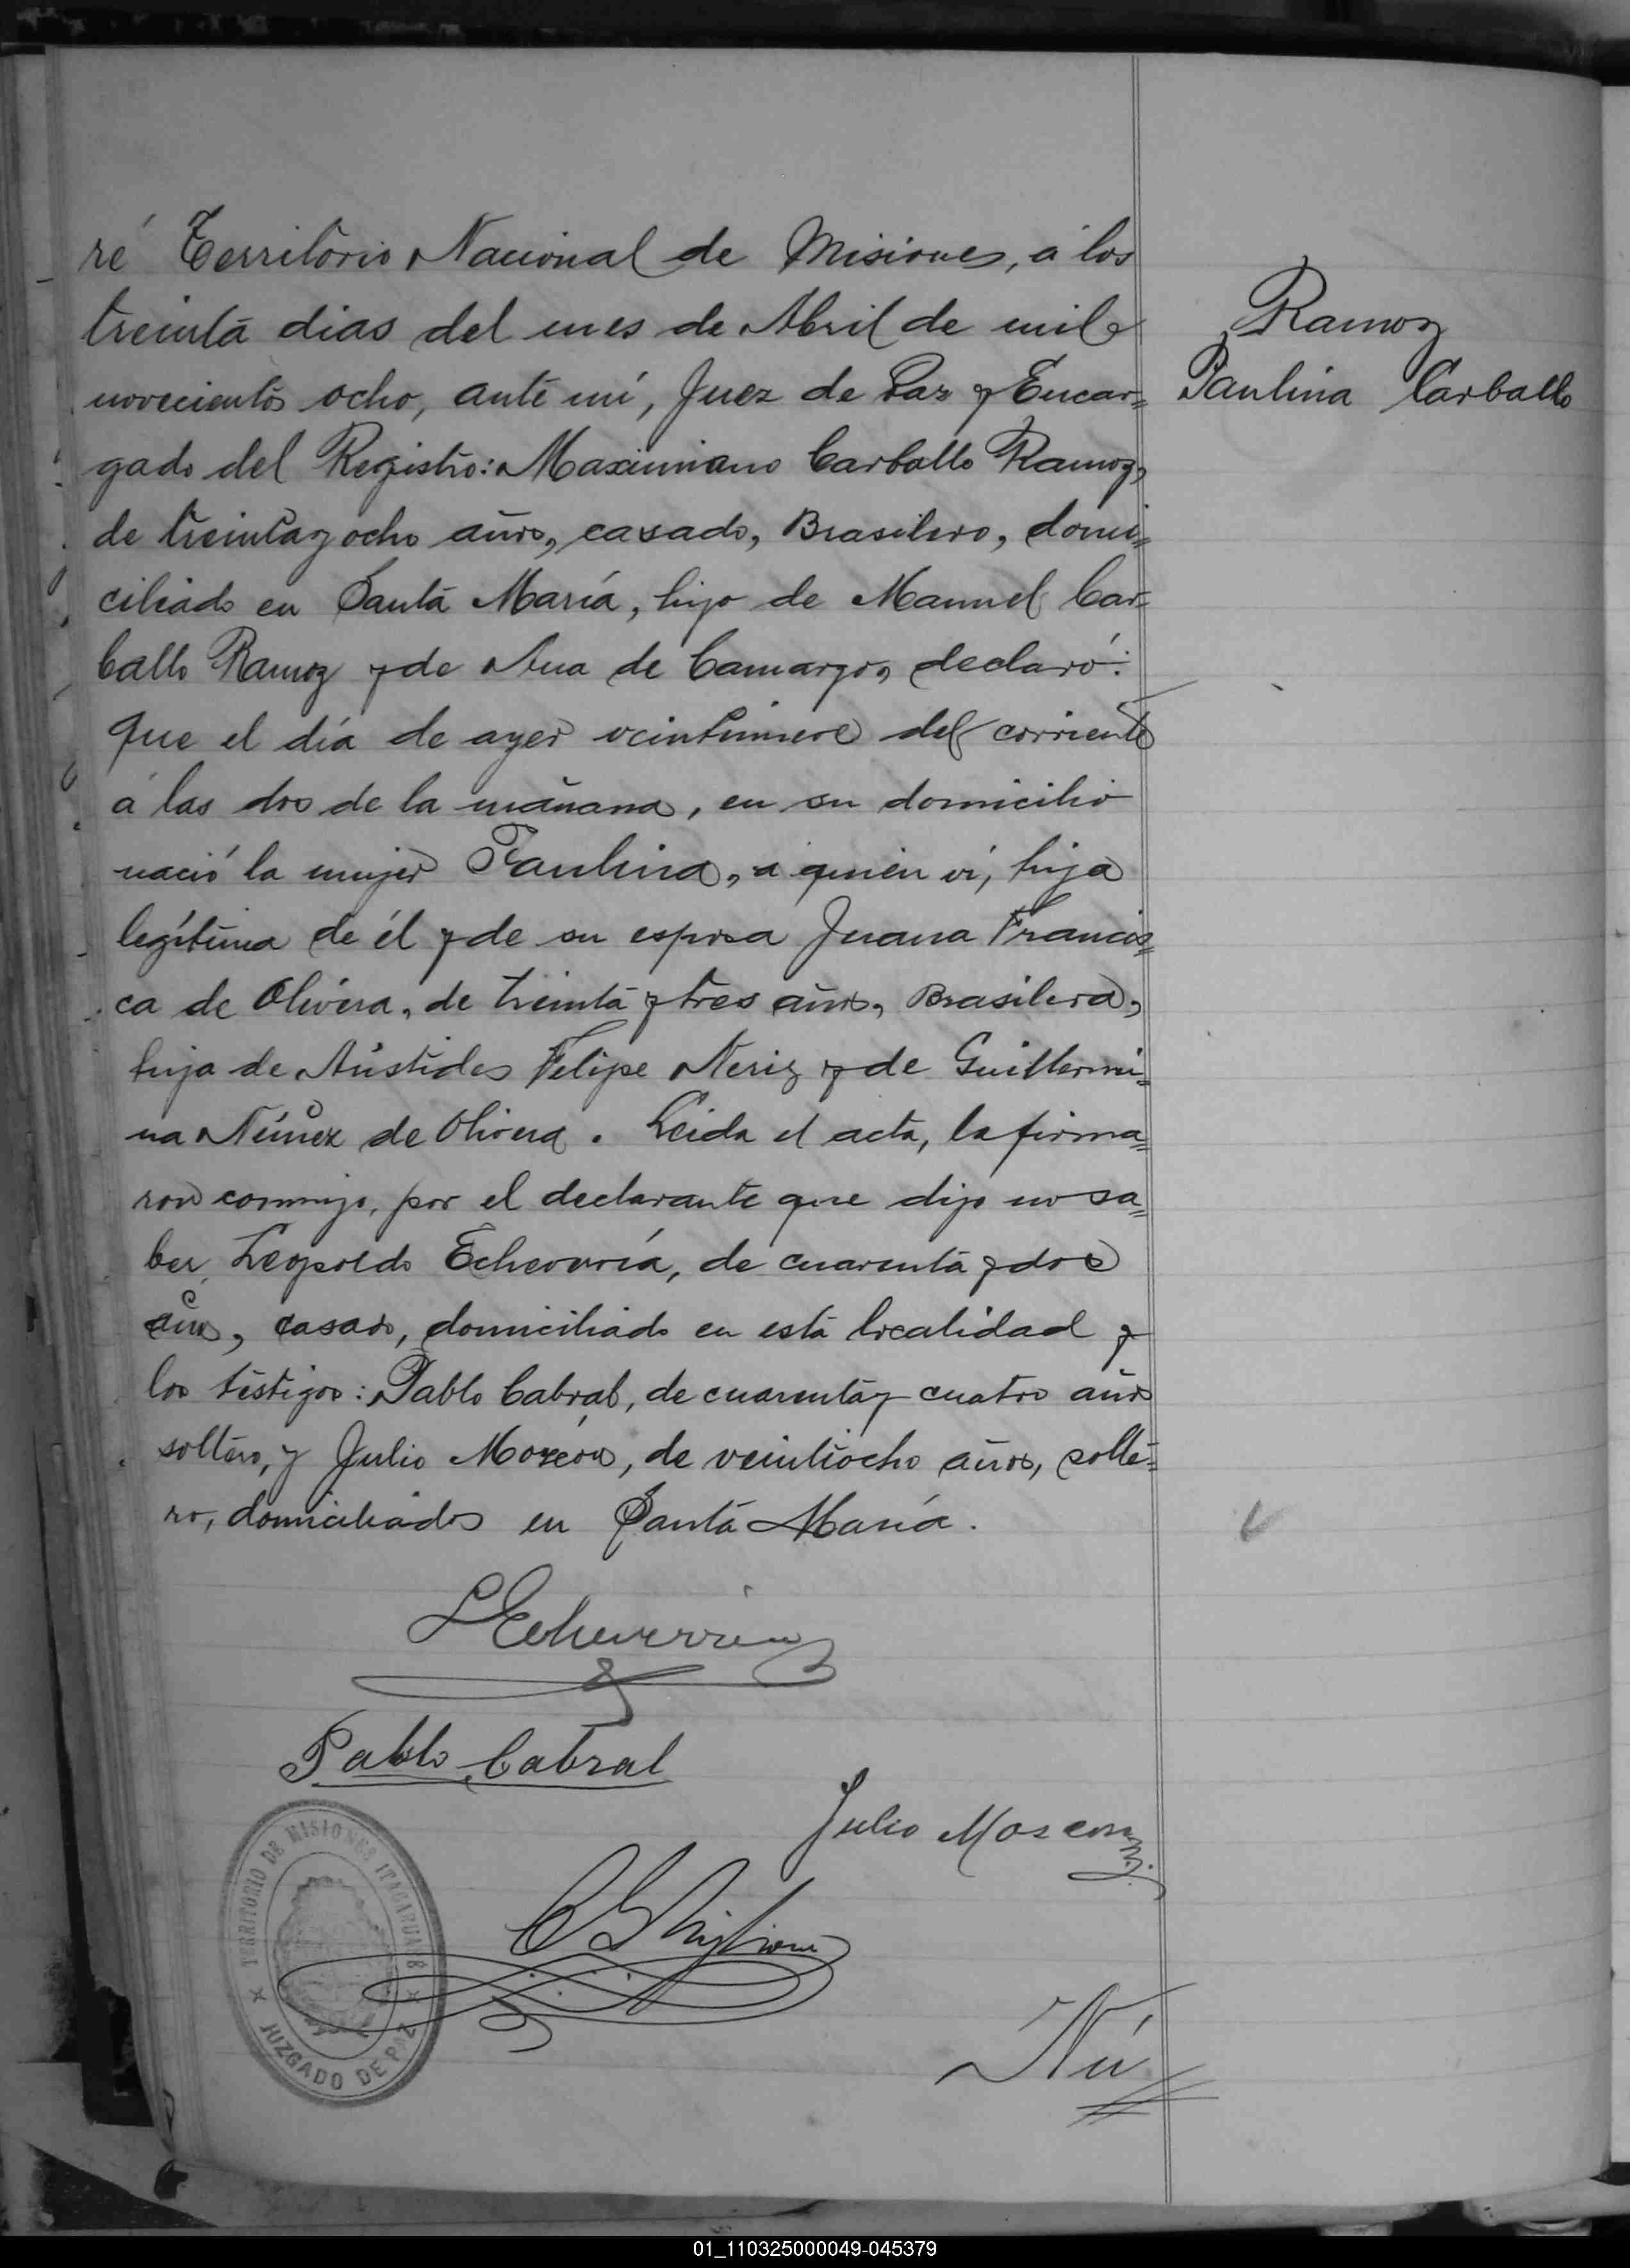 ré Territorio Nacional de Misiones, á los
treinta dias del mes de Abril de mil
novecientos ocho, ante mí, Juez de Paz y Encar=
gado del Registro: Maximiano Carballo Ramoz,
de treinta y ocho años, casado, Brasilero, domi=
ciliado en Santa María, hijo de Manuel Car=
ballo Ramoz y de Ana de Camargo, declaró:
Que el día de ayer veintinueve del corriente
á las dos de la mañana, en su domicilio
nació la mujer Paulina, a quien vi, hija
legítima de él y de su esposa Juana Francis=
ca de Olivera, de treinta y tres años, Brasilera,
hija de Arístides Felipe Neriz y de Guillermi=
na Núñez de Olivera. Leida el acta, la firma=
ron conmigo, por el declarante que dijo no sa=
ber, Leopoldo Echeverría, de cuarenta y dos
años, casado, domiciliado en esta localidad y
los testigos: Pablo Cabral, de cuarenta y cuatro años
soltero, y Julio de veintiocho años, solte=
ro, domiciliados en Santa María.
Ramoz
Paulina Carballo
L Echeverria
Pablo Cabral
Julio
TERRITORIO DE MISIONES ITACARUARÉ
JUZGADO DE PAZ
Nú
01_110325000049-045379